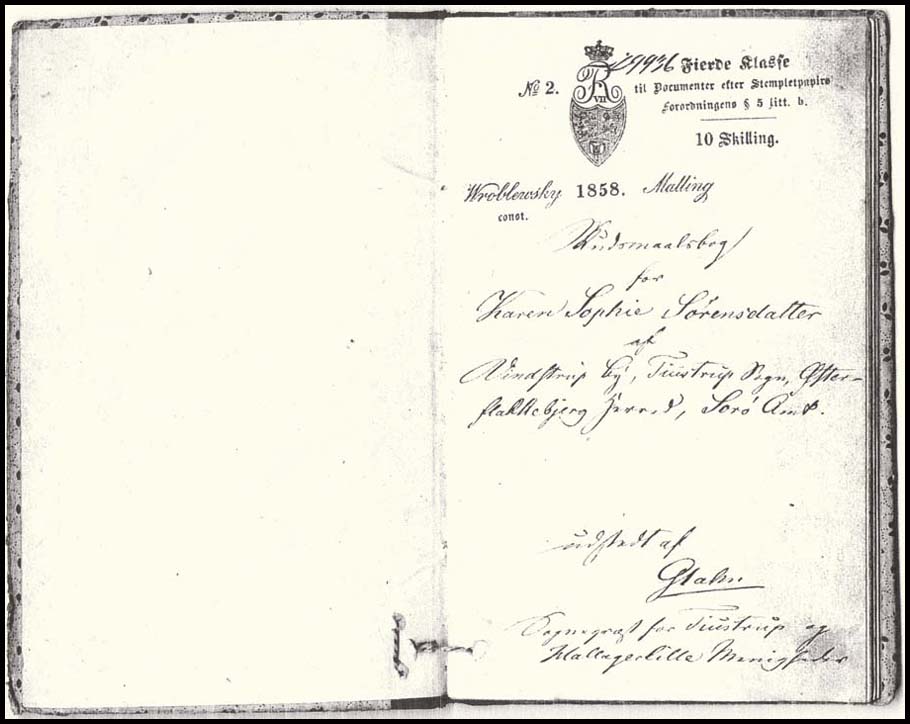 19936 Fierde Klasse
№ 2. til Documenter efter Stempletpapirs
Forordningens § 5 Litt. b.
R VII
10 Skilling.
Wroblewsky 1858. Malling
const.
Skudsmaalsbog
for
Karen Sophie Sørensdatter
af
Vindstrup By, Tiustrup Sogn, Øster-
flakkebjerg Herred, Sorö Amt.
udstedt af
Glahn
Sognepræst for Tiustrup og
Haldagerlille Menigheder